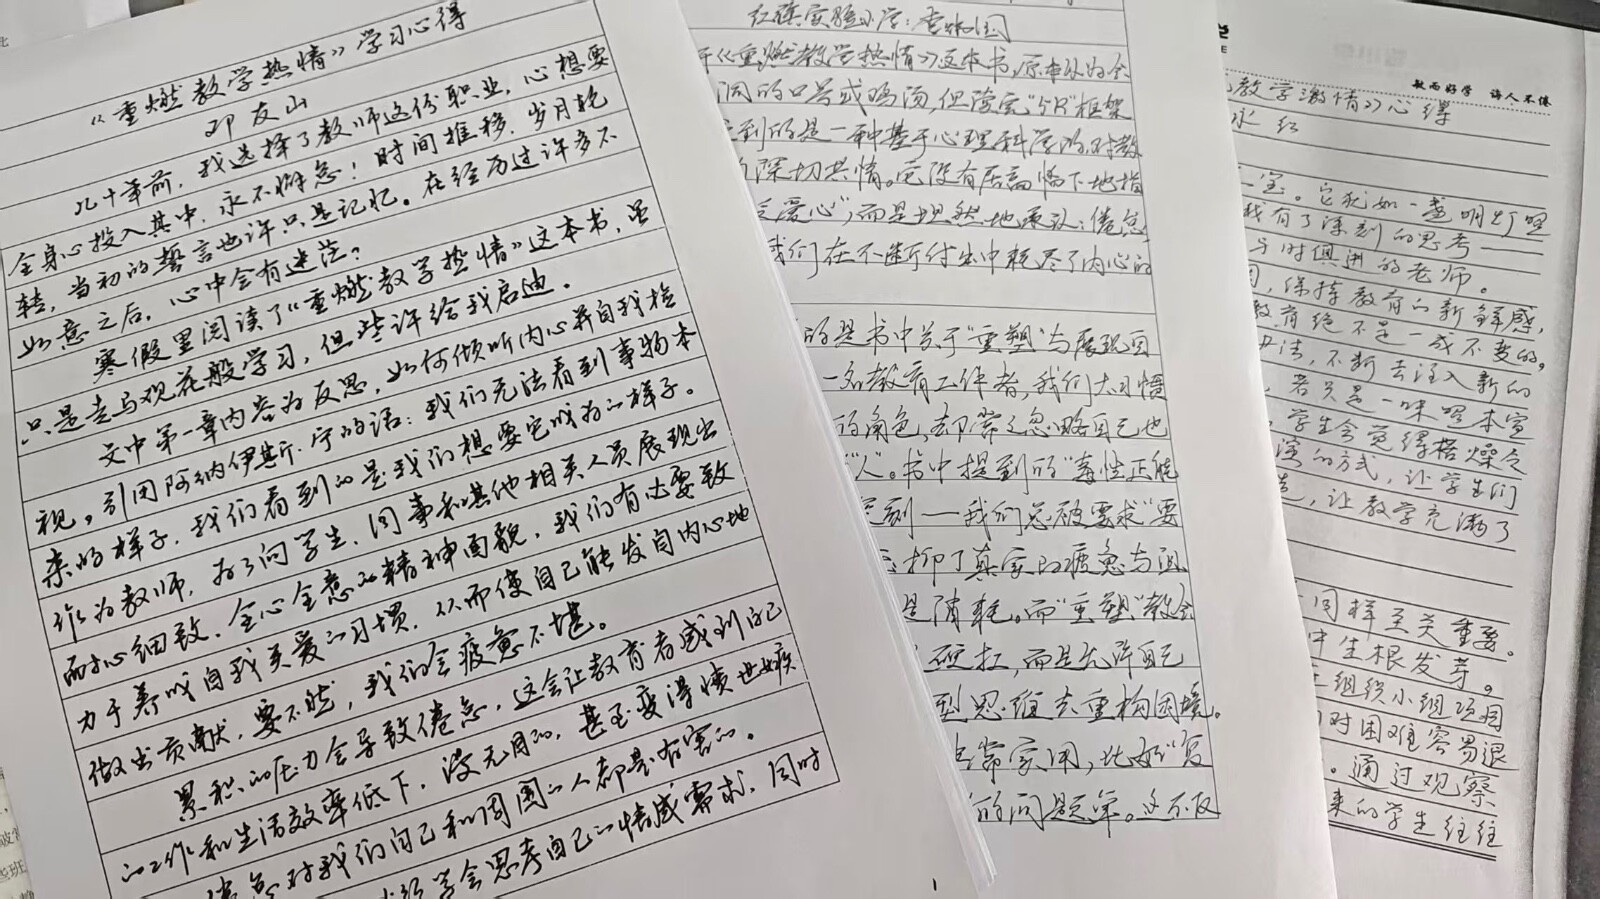 《重燃教学热情》学习心得
邓友山
几十年前，我选择了教师这份职业，心想要
全身心投入其中，永不懈怠！时间推移，岁月轮
转，当初的誓言也许只是记忆。在经历过许多不
如意之后，心中会有迷茫？
寒假里阅读了《重燃教学热情》这本书，虽
只是走马观花般学习，但些许给我启迪。
文中第一章内容为反思，如何倾听内心并自我检
视。引用阿纳伊斯·宁的话：我们无法看到事物本
来的样子，我们看到的是我们想要它成为的样子。
作为教师，为了向学生、同事和其他相关人员展现出
耐心细致、全心全意的精神面貌，我们有必要致
力于养成自我关爱的习惯，从而使自己能发自内心地
做出贡献，要不然，我们会疲惫不堪。
累积的压力会导致倦怠，这会让教育者感到自己
的工作和生活效率低下，漫无目的，甚至变得愤世嫉
倦怠对我们自己和周围的人都是有害的。
学会思考自己的情感需求，同时
红旗实验小学：
《重燃教学热情》这本书，原本以为会
洞的口号或鸡汤，但读完"5R"框架
到的是一种基于心理科学的、对教
深切共情。它没有居高临下地指
爱心"，而是坦然地承认：倦怠
我们在不断付出中耗尽了内心的
的是书中关于"重塑"与展现自
一名教育工作者，我们太习惯
的角色，却常常忽略自己也
"人"。书中提到的"毒性正能
深刻——我们总被要求"要
抑了真实的疲惫与沮
是消耗。而"重塑"教会
硬扛，而是允许自己
型思维去重构困境。
非常实用，比如"复
的问题单。这不仅
诲人不倦
教学激情》心得
水红
宝。它犹如一盏明灯照
我有了深刻的思考——
与时俱进的老师。
保持教育的新鲜感，
教育绝不是一成不变的，
方法，不断去注入新的
若只是一味照本宣
学生会觉得枯燥乏
演的方式，让学生们
让教学充满了
同样至关重要。
中生根发芽。
组织小组项目
对困难容易退
。通过观察
来的学生往往